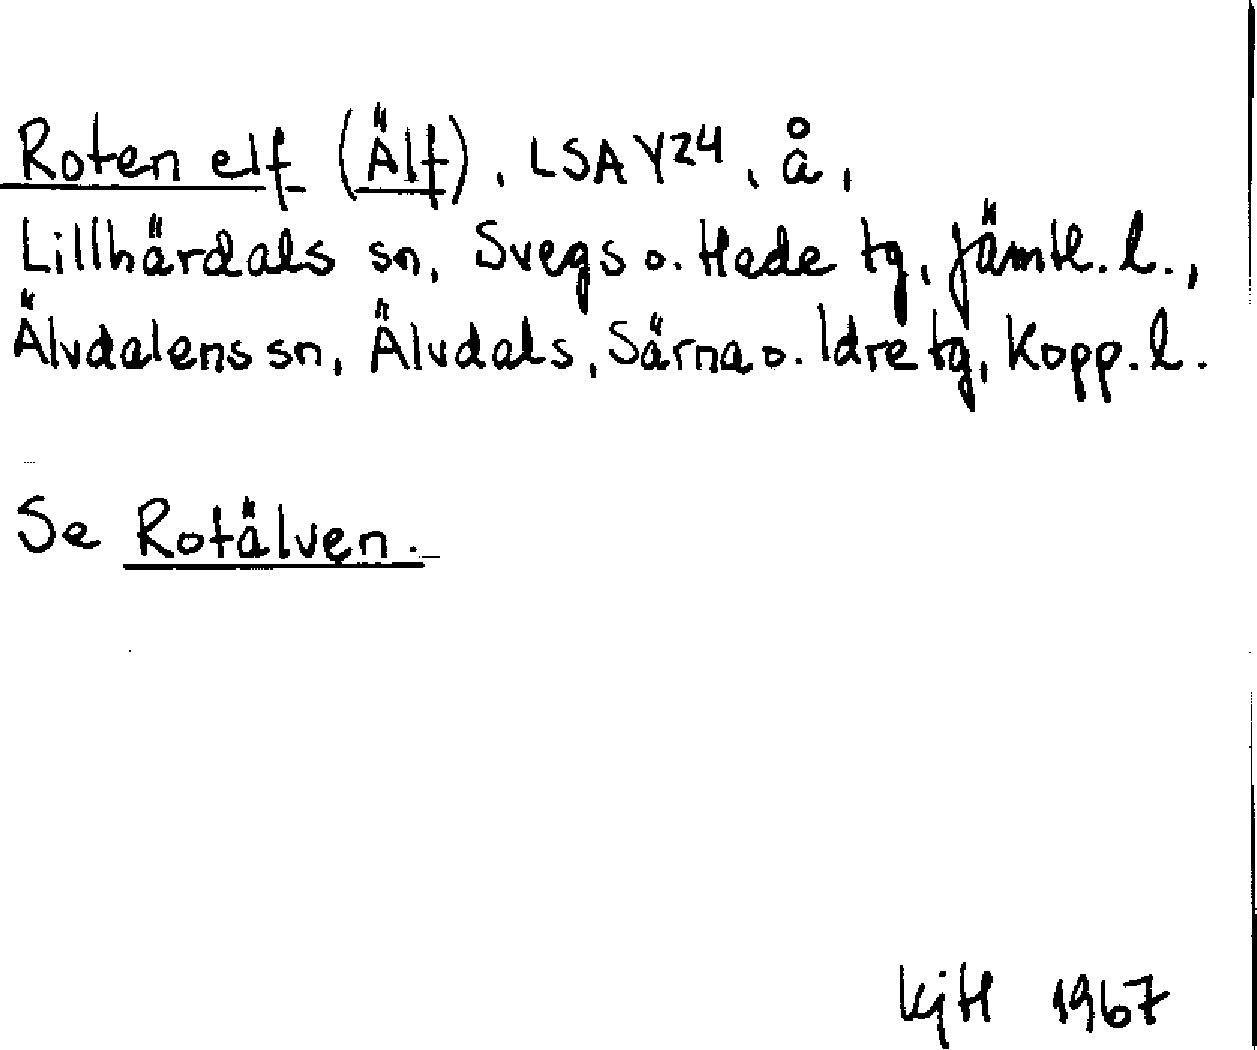 Roten elf (Älf), LSA Y24, å,
Lillhärdals sn, Svegs o. Hede tg, Jämtl. l.,
Älvdalens sn, Älvdals, Särna o. Idre tg, Kopp. l.
Se Rotälven.
KjH 1967